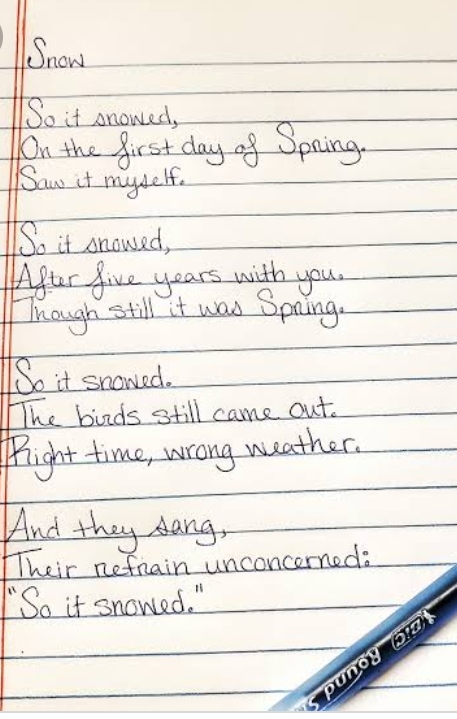 Snow
So it snowed,
On the first day of Spring.
Saw it myself.
So it snowed,
After five years with you.
Though still it was Spring.
So it snowed.
The birds still came out.
Right time, wrong weather.
And they sang,
Their refrain unconcerned:
"So it snowed."
BIC Round